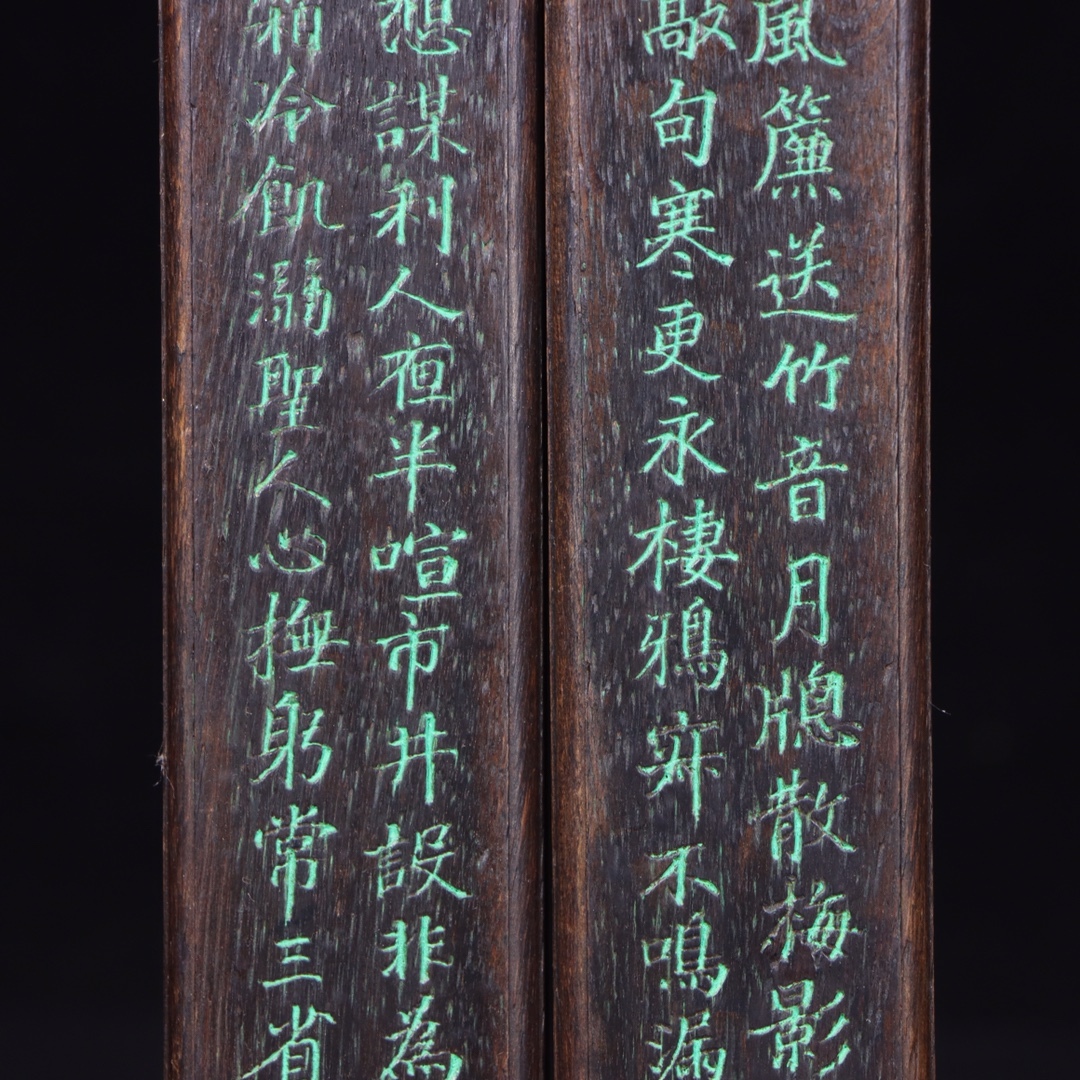 風簾送竹音月牕散梅影
敲句寒更永棲鴉寂不鳴漏
想謀利人亱半喧市井設非為
霜冷飢溺聖人心撫躬常三省